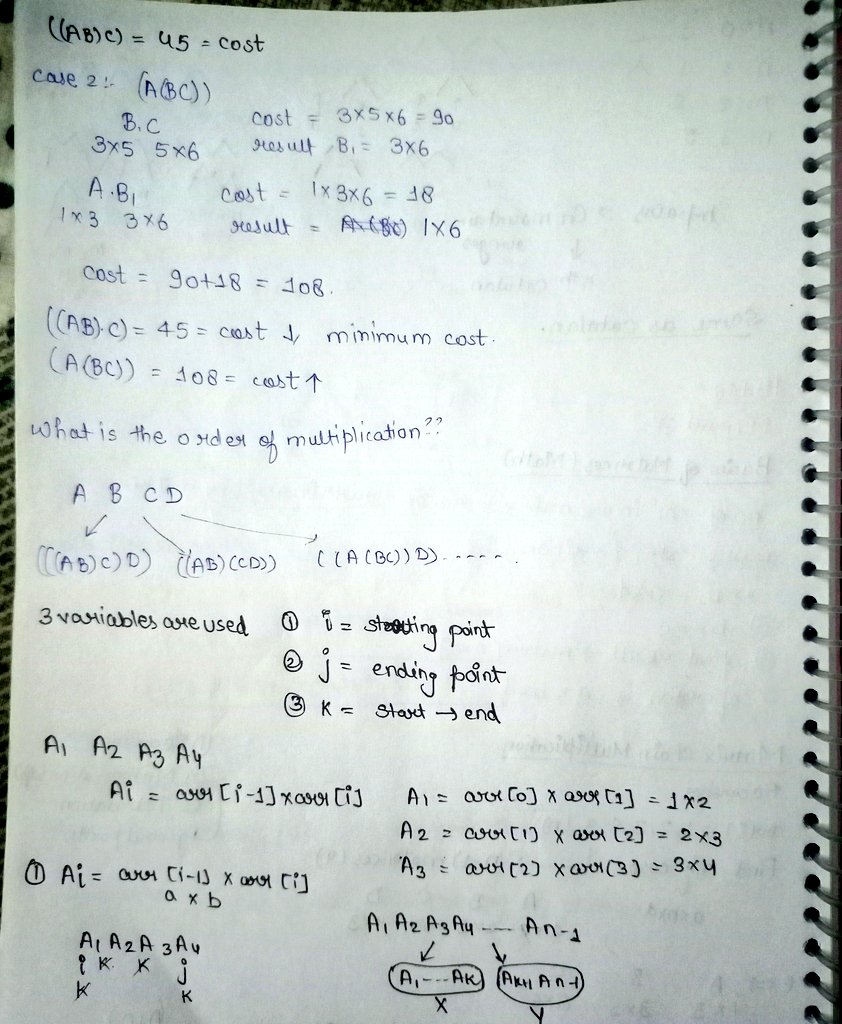 ((AB)C) = 45 = cost
case 2:- (A(BC))
B.C cost = 3×5×6 = 90
3×5 5×6 result B₁ = 3×6
A.B₁ cost = 1×3×6 = 18
1×3 3×6 result = 1×6
cost = 90+18 = 108.
((AB).C) = 45 = cost ↓ minimum cost.
(A(BC)) = 108 = cost ↑
What is the order of multiplication??
A B C D
(((AB)C)D) ((AB)(CD)) ((A(BC))D)------.
3 variables are used ① i = starting point
② j = ending point
③ K = start → end
A1 A2 A3 A4
Ai = arr [i-1] x arr [i] A1 = arr [0] x arr [1] = 1x2
A2 = arr [1] x arr [2] = 2x3
A3 = arr [2] x arr [3] = 3x4
① Ai = arr [i-1] x arr [i]
a x b
A1 A2 A3 A4 ---- An-1
A1 A2 A3 A4
i K K j
K K
(A1---AK) (AK+1 An-1)
X Y